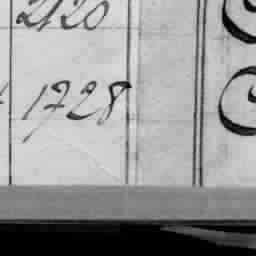 2120
1728